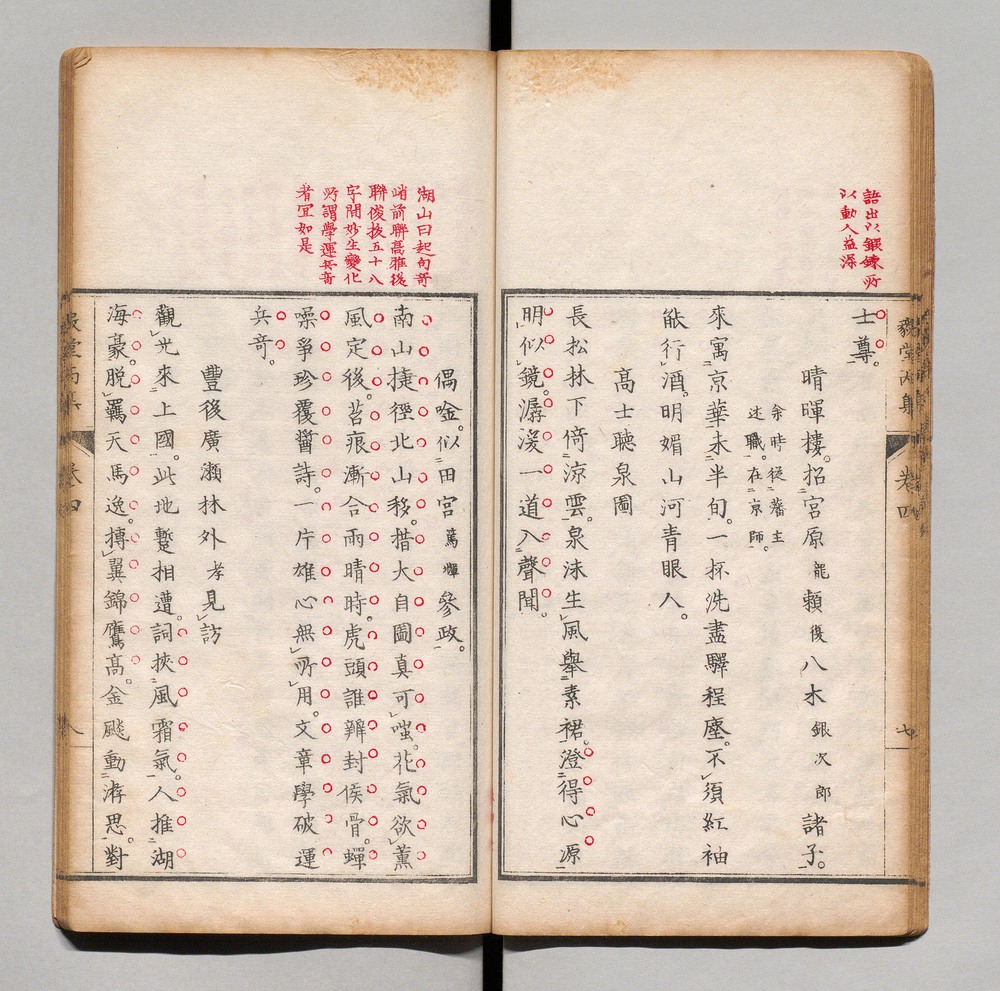 語出以鍛錬所
以動人益深
毅堂丙集 卷四 七
士尊。
晴暉樓。招宮原龍頼復八木銀次郎諸子。
余時從藩主
述職。在京師。
來寓京華未半旬。一杯洗盡驛程塵。不須紅袖
能行酒。明媚山河青眼人。
高士聽泉圖
長松林下倚涼雲。泉沫生風擧素裙。澄得心源
明似鏡。潺湲一道入聲聞。
湖山曰起句奇
峭前聯高雅後
聯俊拔五十八
字間妙生變化
所謂學運兵奇
者宜如是
偶唫。似田宮篤輝參政。
南山捷徑北山移。措大自圖真可嗤。花氣欲薰
風定後。苔痕漸合雨晴時。虎頭誰辨封侯骨。蟬
噪爭珍覆醤詩。一片雄心無所用。文章學破運
兵奇。
豐後廣瀨林外孝見訪
觀光來上國。此地蹔相遭。詞挾風霜氣。人推湖
海豪。脱羈天馬逸。搏翼錦鷹高。金飈動游思。對
毅堂丙集 卷四 八